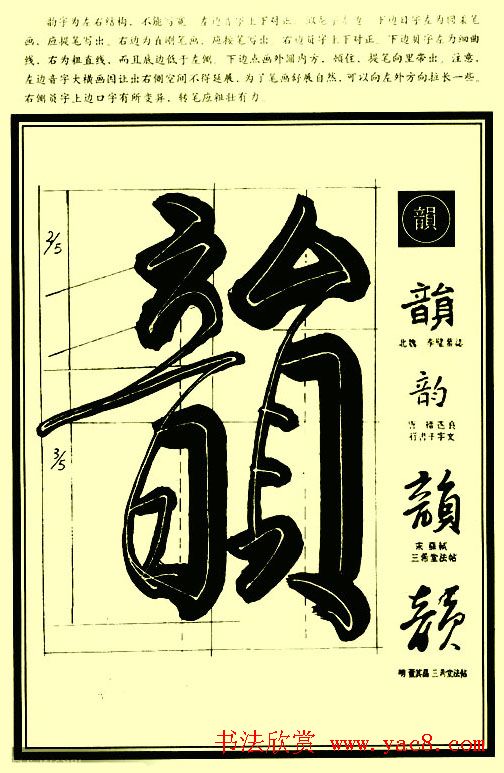 韵字为左右结构，不能写宽。左边音字上下对正，
下边日字左为圆末笔
画，应提笔写出。右边为直刚笔画，应按笔写出。右边员字上下对正。下边贝字左为细曲
线，右为粗直线，而且底边低于左侧。下边点画外圆内方，顿住，提笔向里带出。注意，
左边音字大横画因让出右侧空间不得延展，为了笔画舒展自然，可以向左外方向拉长一些。
右侧员字上边口字有所变异，转笔应粗壮有力。
2/5
3/5
韻
韻
韻
北魏 李璧墓誌
韵
行書千字文
韻
宋
三希堂法帖
韻
明 董其昌 三希堂法帖
书法欣赏 www.yac8.com